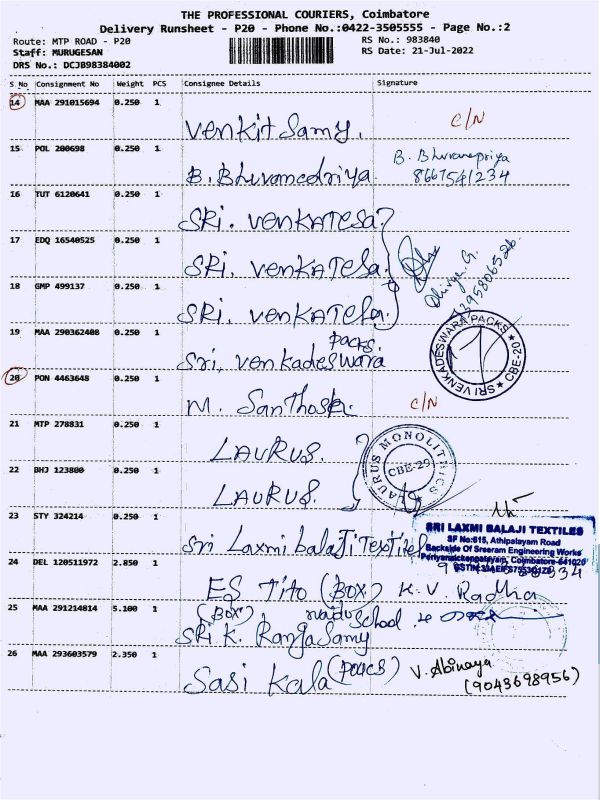 THE PROFESSIONAL COURIERS, Coimbatore
Delivery Runsheet - P20 - Phone No.:0422-3505555 - Page No.:2
Route: MTP ROAD - P20 RS No.: 983840
Staff: MURUGESAN RS Date: 21-Jul-2022
DRS No.: DCJB98384002
S.No Consignment No Weight PCS Consignee Details Signature
14 MAA 291015694 0.250 1
Venkit Samy. C/N
15 POL 200698 0.250 1
B. Bhuvaneshriya B. Bhuvanepriya
8667541234
16 TUT 6120641 0.250 1
SRi. VenKATeSa
17 EDQ 16540525 0.250 1
SRi. VenKATeSa.
18 GMP 499137 0.250 1
SRi. VenKATeSa.
19 MAA 290362408 0.250 1
Packs.
Sri. Venkadeswara
SRI VENKADESWARA PACKS CBE-20
20 PON 4463648 0.250 1
M. Santhosh C/N
21 MTP 278831 0.250 1
LAURUS.
LAURUS MONOLITHICS
CBE-29
22 BHJ 123800 0.250 1
LAURUS.
23 STY 324214 0.250 1
Sri Laxmi balaji Textiles
SRI LAXMI BALAJI TEXTILES
SF No:615, Athipalayam Road
Backside Of Sreeram Engineering Works
Periyanaickenpalayam, Coimbatore-641020
24 DEL 120511972 2.850 1
ES Tito (BOX) K. V. Radha
25 MAA 291214814 5.100 1
(BOX) School
SRi K. RangaSamy
26 MAA 293603579 2.350 1
Sasi Kala V. Abinaya
(9043698956)